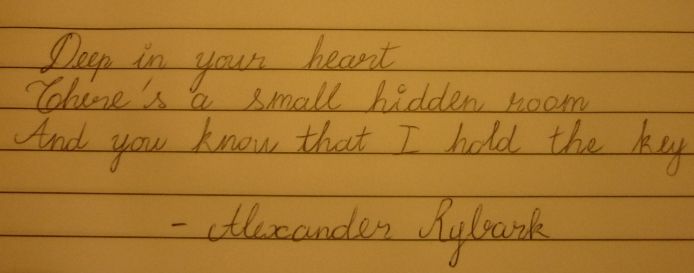 Deep in your heart
There's a small hidden room
And you know that I hold the key
- Alexander Rybark